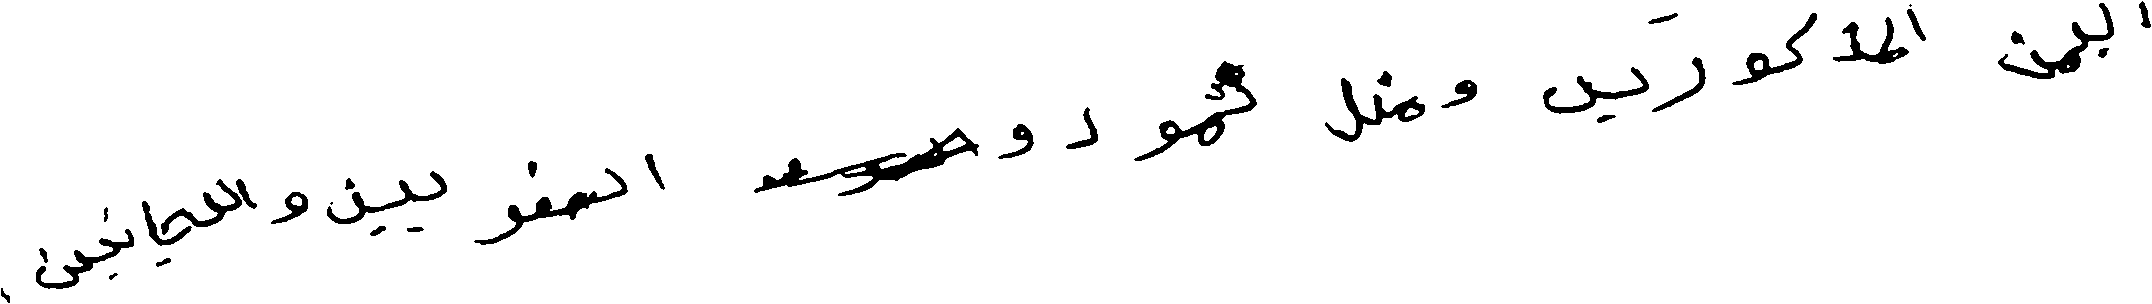 اليمن المذكورين ومثل ثمود و الصفويين واللحيانيين .